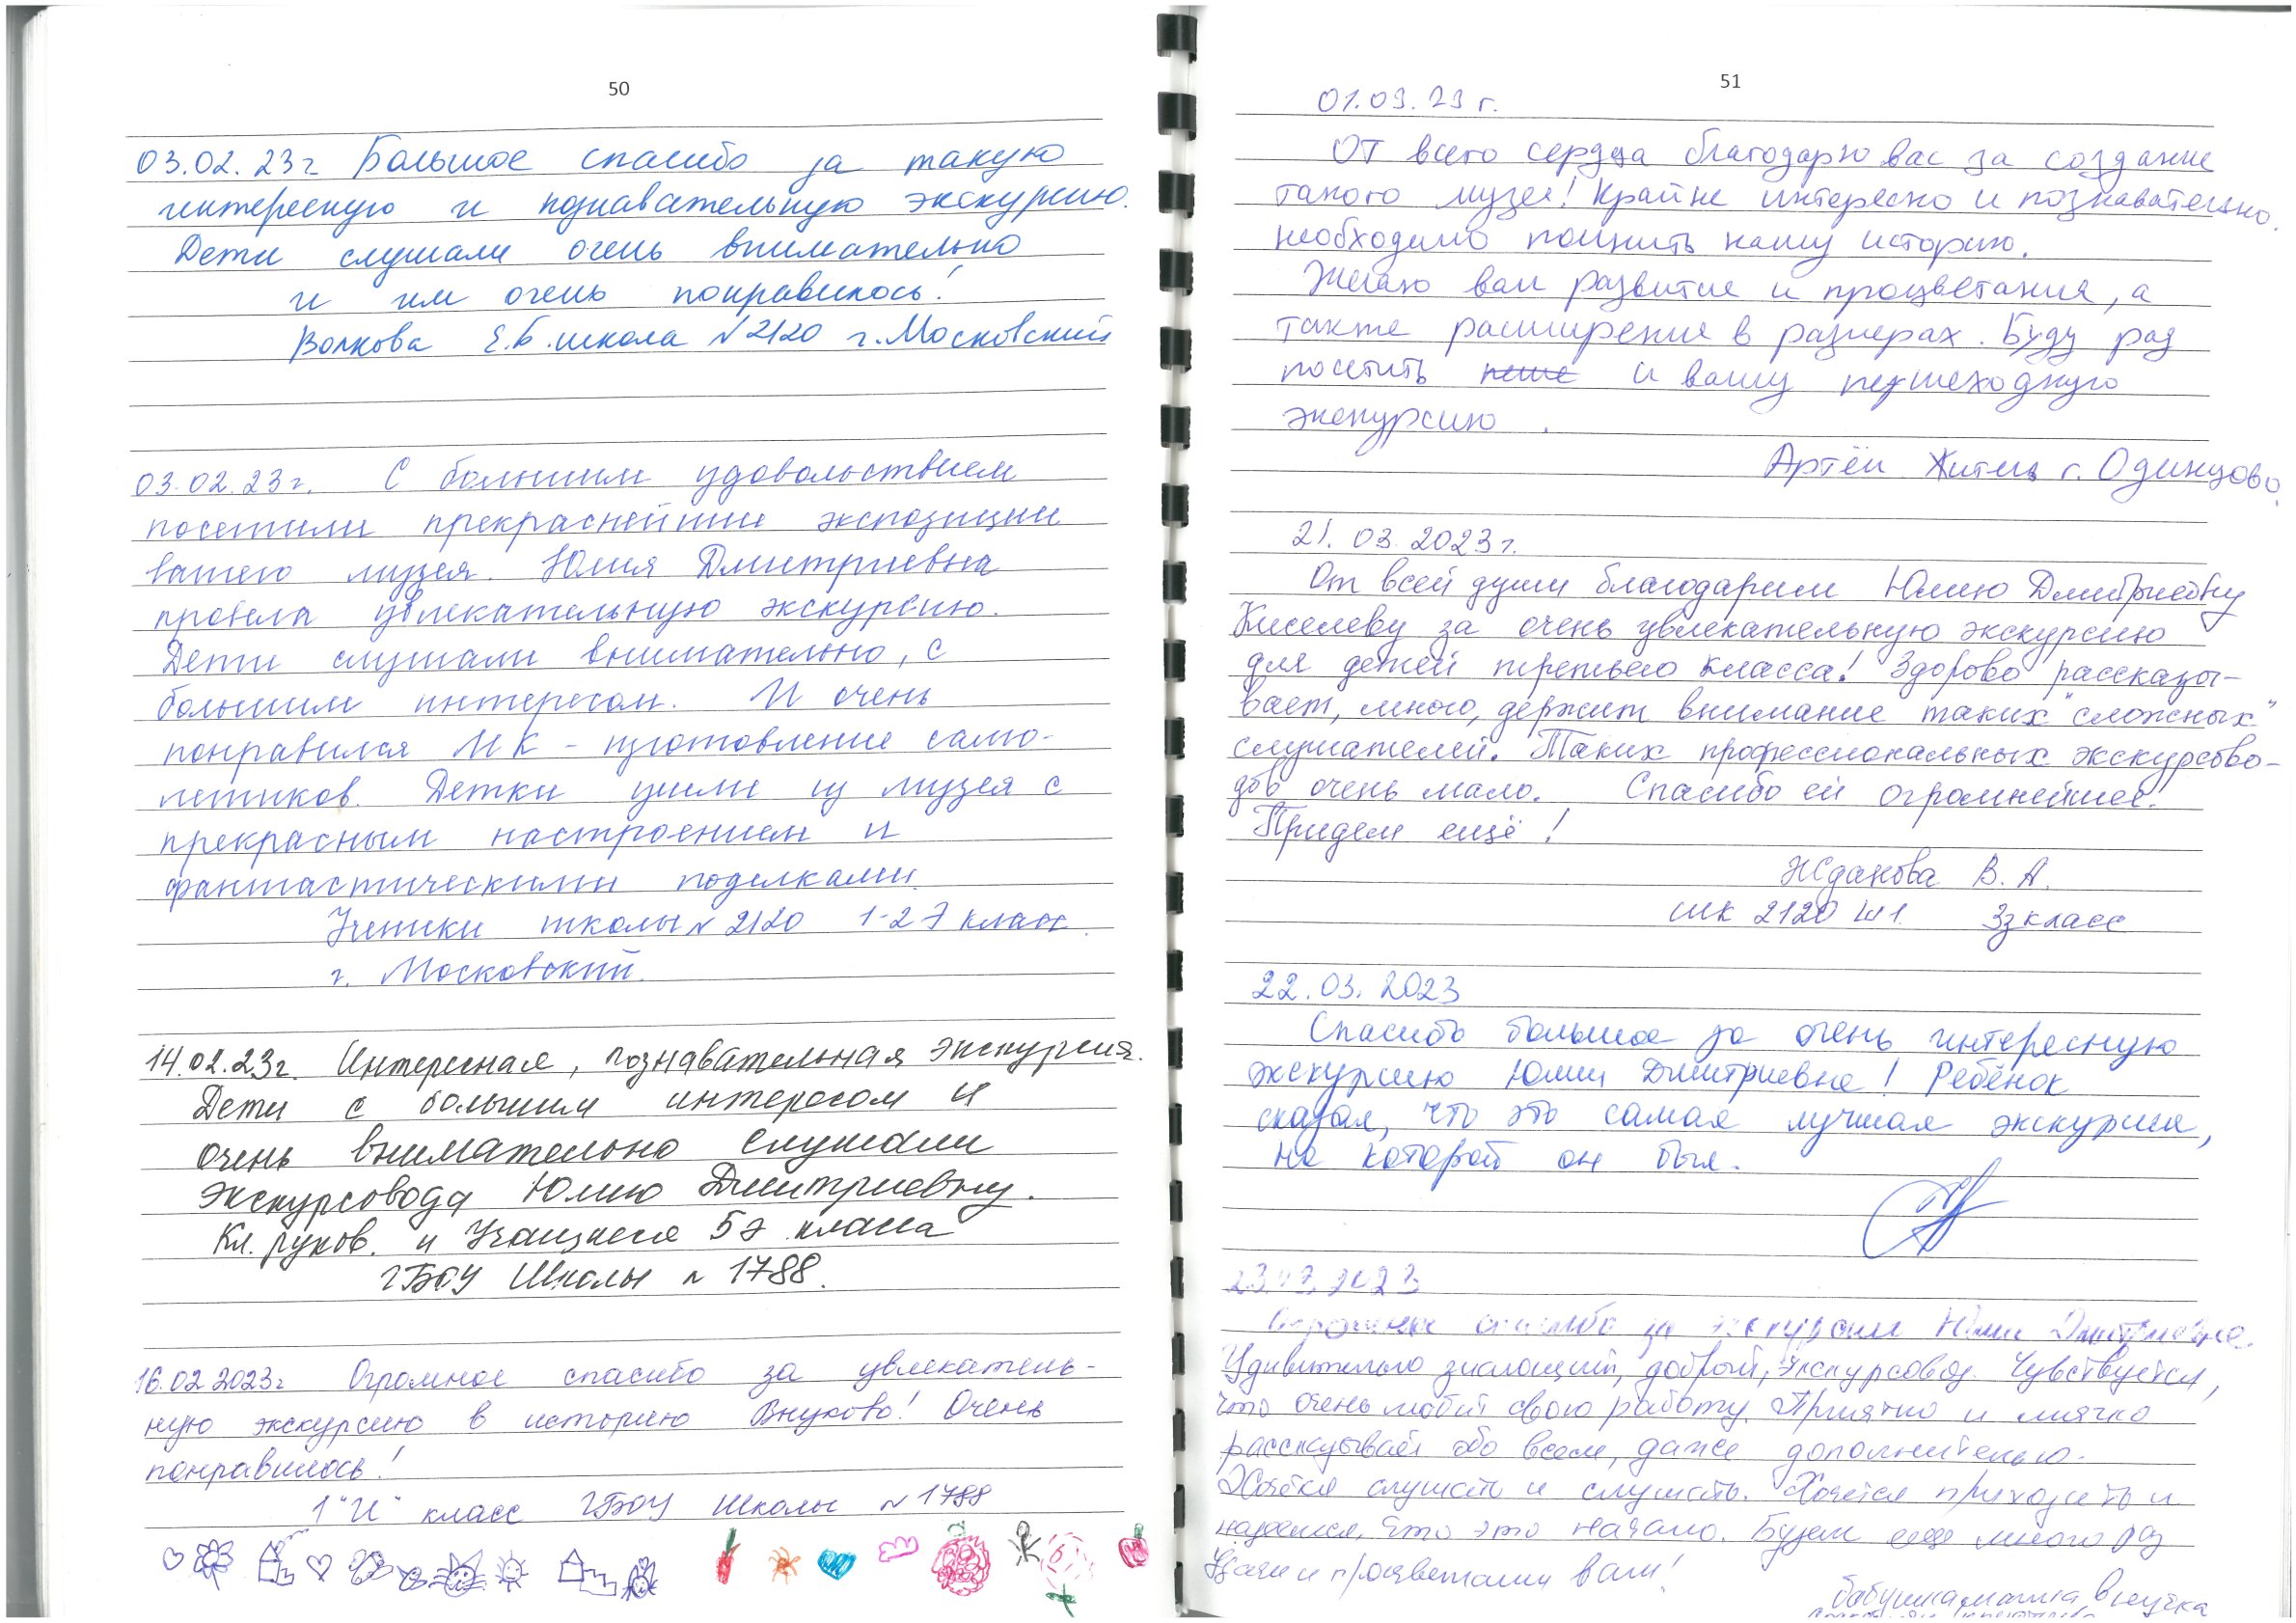 50
03.02.23г Большое спасибо за такую
интересную и познавательную экскурсию.
Дети слушали очень внимательно
и им очень понравилось!
Волкова Е.Б. школа №2120 г. Московский
03.02.23г. С большим удовольствием
посетили прекраснейшие экспозиции
вашего музея. Юлия Дмитриевна
провела увлекательную экскурсию.
Дети слушали внимательно, с
большим интересом. И очень
понравился МК – изготовление само-
летиков. Детки ушли из музея с
прекрасным настроением и
фантастическими поделками.
Ученики школы №2120 1-2 Э класс.
г. Московский.
14.02.23г. Интересная, познавательная экскурсия.
Дети с большим интересом и
очень внимательно слушали
экскурсовода Юлию Дмитриевну.
Кл. руков. и Учащиеся 5э класса
ГБОУ Школы № 1788.
16.02.2023г Огромное спасибо за увлекатель-
ную экскурсию в историю Внуково! Очень
понравилось!
1 "И" класс ГБОУ Школы № 1788
51
01.03.23 г.
От всего сердца благодарю вас за создание
такого музея! Крайне интересно и познавательно.
необходимо помнить нашу историю.
Желаю вам развития и процветания, а
также расширения в размерах. Буду рад
посетить пеше и вашу пешеходную
экскурсию.
Артём Житель г. Одинцово.
21.03.2023г.
От всей души благодарим Юлию Дмитриевну
Киселеву за очень увлекательную экскурсию
для детей третьего класса! Здорово рассказы-
вает, много, держит внимание таких "сложных"
слушателей. Таких профессиональных экскурсово-
дов очень мало. Спасибо ей огромнейшее!
Придем ещё!
Жданова В. А.
ШК 2120 Ш1. 3з класс
22.03.2023
Спасибо большое за очень интересную
экскурсию Юлии Дмитриевне! Ребёнок
сказал, что это самая лучшая экскурсия,
на которой он был.
23.03.2023
Огромное спасибо за экскурсию Юлии Дмитриевне.
Удивительно знающий, добрый, экскурсовод. Чувствуется,
что очень любит свою работу. Приятно и мягко
рассказывает обо всем, даже дополнительно.
Хочется слушать и слушать. Хочется приходить и
надеемся, что это начало. Будем еще много раз
Удачи и процветания вам!
бабушка, мама, внучка